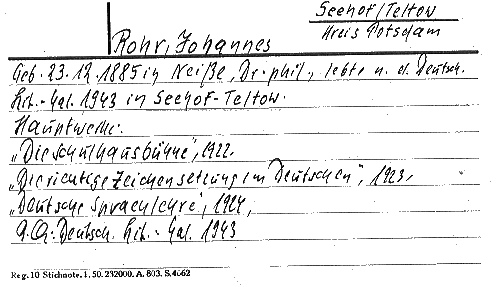 Seehof/Teltow
Kreis Potsdam
Rohr, Johannes
Geb. 23.12.1885 in Neiße, Dr. phil., lebte n. d. Deutsch.
Lit.-Kal. 1943 in Seehof-Teltow.
Hauptwerke:
„Die Schulhausbühne", 1922.
„Die richtige Zeichensetzung im Deutschen", 1923,
„Deutsche Sprachlehre", 1924,
a.a.: Deutsch. Lit.-Kal. 1943
Reg. 10 Stichnote. I. 50. 232000. A. 803. S. 4662